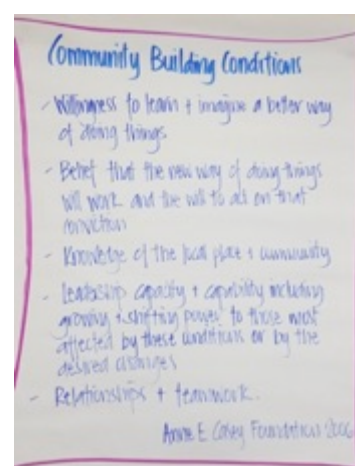 Community Building Conditions
- Willingness to learn + imagine a better way
of doing things
- Belief that the new way of doing things
will work and the will to act on that
conviction
- Knowledge of the local place + community
- Leadership capacity + capability including
growing + shifting power to those most
affected by these conditions or by the
desired changes
- Relationships + teamwork.
Annie E Casey Foundation 2006